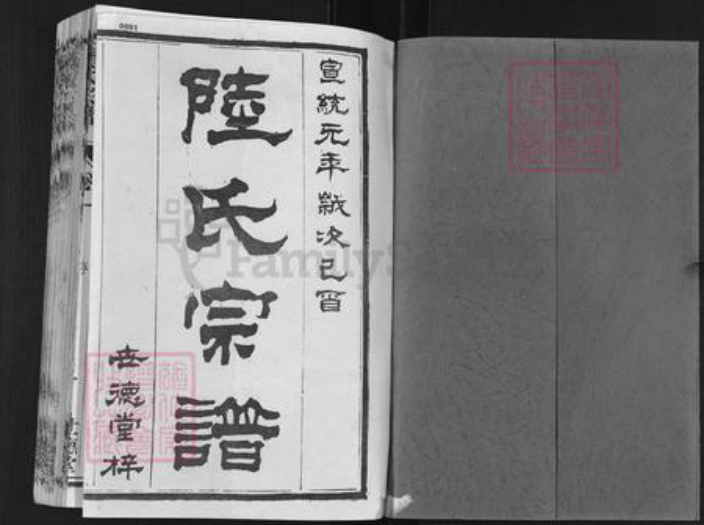 宣統元年歲次己酉
陸氏宗譜
世德堂梓
0001
FamilySearch